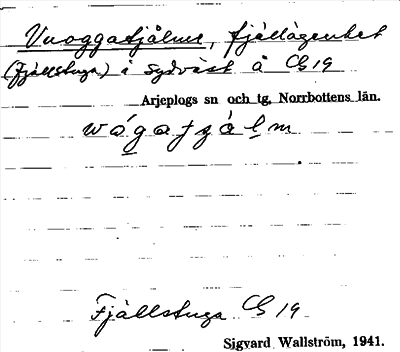 Vuoggatjålme, fjällägenhet
(Fjällstuga) i sydväst å Cb 19
Arjeplogs sn och tg, Norrbottens län.
wógatjålm
Fjällstuga Cb 19
Sigvard Wallström, 1941.